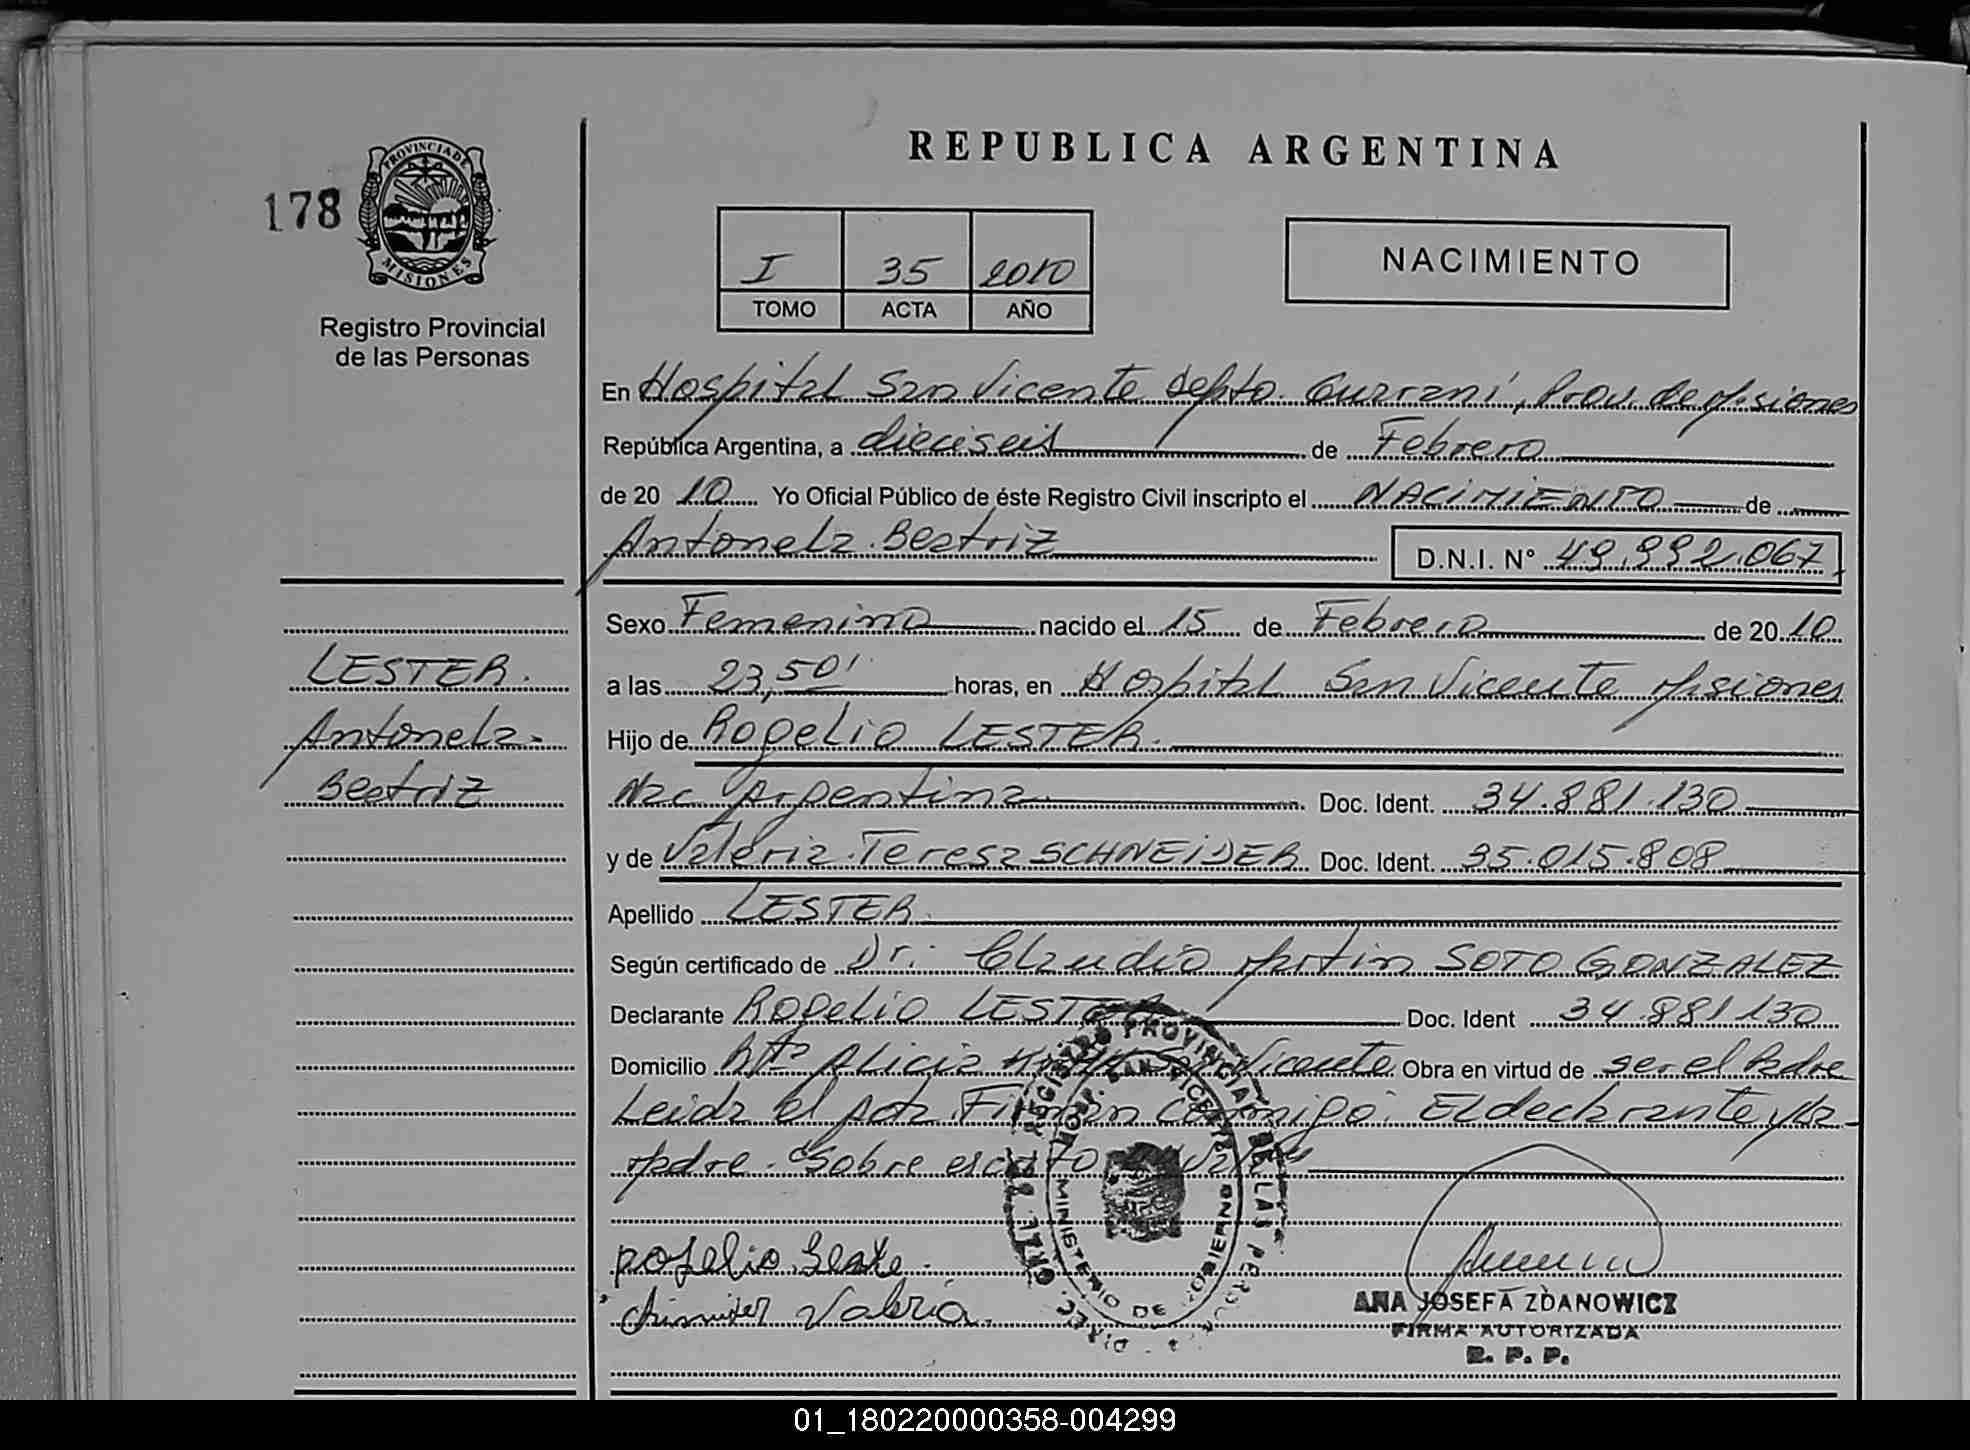 REPUBLICA ARGENTINA
178
PROVINCIA DE
MISIONES
Registro Provincial
de las Personas
I 35 2010
TOMO ACTA AÑO
NACIMIENTO
En Hospital San Vicente Depto. Guaraní, Prov. de Misiones
República Argentina, a dieciseis de Febrero
de 20 10 Yo Oficial Público de éste Registro Civil inscripto el NACIMIENTO de
Antonela Beatriz D.N.I. N° 49.992.067
Sexo Femenino nacido el 15 de Febrero de 20 10
LESTER.
a las 23,50' horas, en Hospital San Vicente Misiones
Antonela
Hijo de Rogelio LESTER.
Beatriz
Nac Argentina Doc. Ident. 34.881.130
y de Valeria Teresa SCHNEIDER Doc. Ident. 35.015.808
Apellido LESTER
Según certificado de Dr. Claudio Martin SOTO GONZALEZ
Declarante Rogelio LESTER Doc. Ident 34.881.130
Domicilio Alicia San Vicente Obra en virtud de ser el Padre
Leida el Acta Firman Conmigo: El declarante y la
Madre. Sobre escrito
REGISTRO PROVINCIAL DE LAS PERSONAS
SAN VICENTE
MINISTERIO DE GOBIERNO
Rogelio Leste
Valeria
ANA JOSEFA ZDANOWICZ
FIRMA AUTORIZADA
R. P. P.
01_180220000358-004299